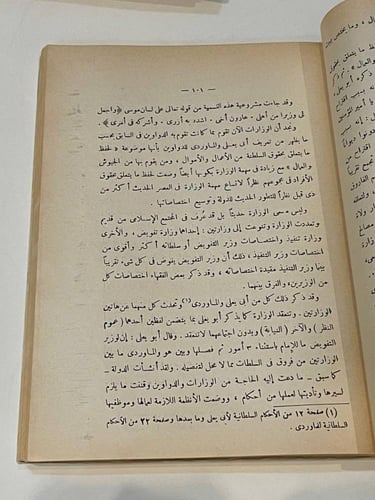 — ١٠٦ —
وقد جاءت مشروعية هذه التسمية من قوله تعالى على لسان موسى ﴿ واجعل
لى وزيرا من أهلى . هارون أخى . اشدد به أزرى . وأشركه فى أمرى ﴾ .
ونجد أن الوزارات الآن تقوم بما كانت تقوم به الدواوين فى السابق بحسب
ما يظهر من تعريف أبى يعلى والماوردى للدواوين بأنها موضوعة « لحفظ
ما يتعلق بحقوق السلطنة من الأعمال والأموال ، ومن يقوم بها من الجيوش
والعمال » مع زيادة فى مهمة الوزارة بكونها أيضاً وضعت لحفظ ما يتعلق بحقوق
الأفراد فى مجموعهم نظراً لاتساع مهمة الوزارة فى العصر الحديث أكثر من
ذى قبل نظراً للتطور الحديث للدولة وتوسيع اختصاصاتها .
وليس مسمى الوزارة حديثاً بل قد عُرف فى المجتمع الإسلامى من قديم
وتعددت الوزارة وتنوعت إلى وزارتين : إحداهما وزارة تفويض ، والأخرى
وزارة تنفيذ واختصاصات وزير التفويض أو سلطاته أكثر وأقوى من
اختصاصات وزير التنفيذ ، ذلك أن وزير التفويض يفوض فى كل شىء تقريباً
بينما وزير التنفيذ مقيدة اختصاصاته ، وقد ذكر بعض الفقهاء اختصاصات كل
من الوزيرين والفرق بينهما .
وقد ذكر ذلك كل من أبى يعلى والماوردى (١) وتحدث كل منهما عن هاتين
الوزارتين ، وتنعقد الوزارة كما يذكر أبو يعلى بما يتضمن لفظين أحدهما ( عموم
النظر ) والآخر ( النيابة ) وبدون اجتماعهما لا تنعقد . وقال أبو يعلى : إن لوزير
التفويض ما للإمام باستثناء ٣ أمور ثم فصلها وبين هو والماوردى ما بين
الوزارتين من فروق فى السلطات مما لا محل لتفصيله . ولقد أنشأت الدولة –
كما سبق – ما دعت إليه الحاجة من الوزارات والدواوين وقننت ما يلزم
لسيرها وتأديتها لعملها من أحكام ، ووضعت الأنظمة اللازمة لعمالها وموظفيها
(١) صفحة ١٣ من الأحكام السلطانية لأبى يعلى وما بعدها وصفحة ٢٢ من الأحكام
السلطانية للماوردى .